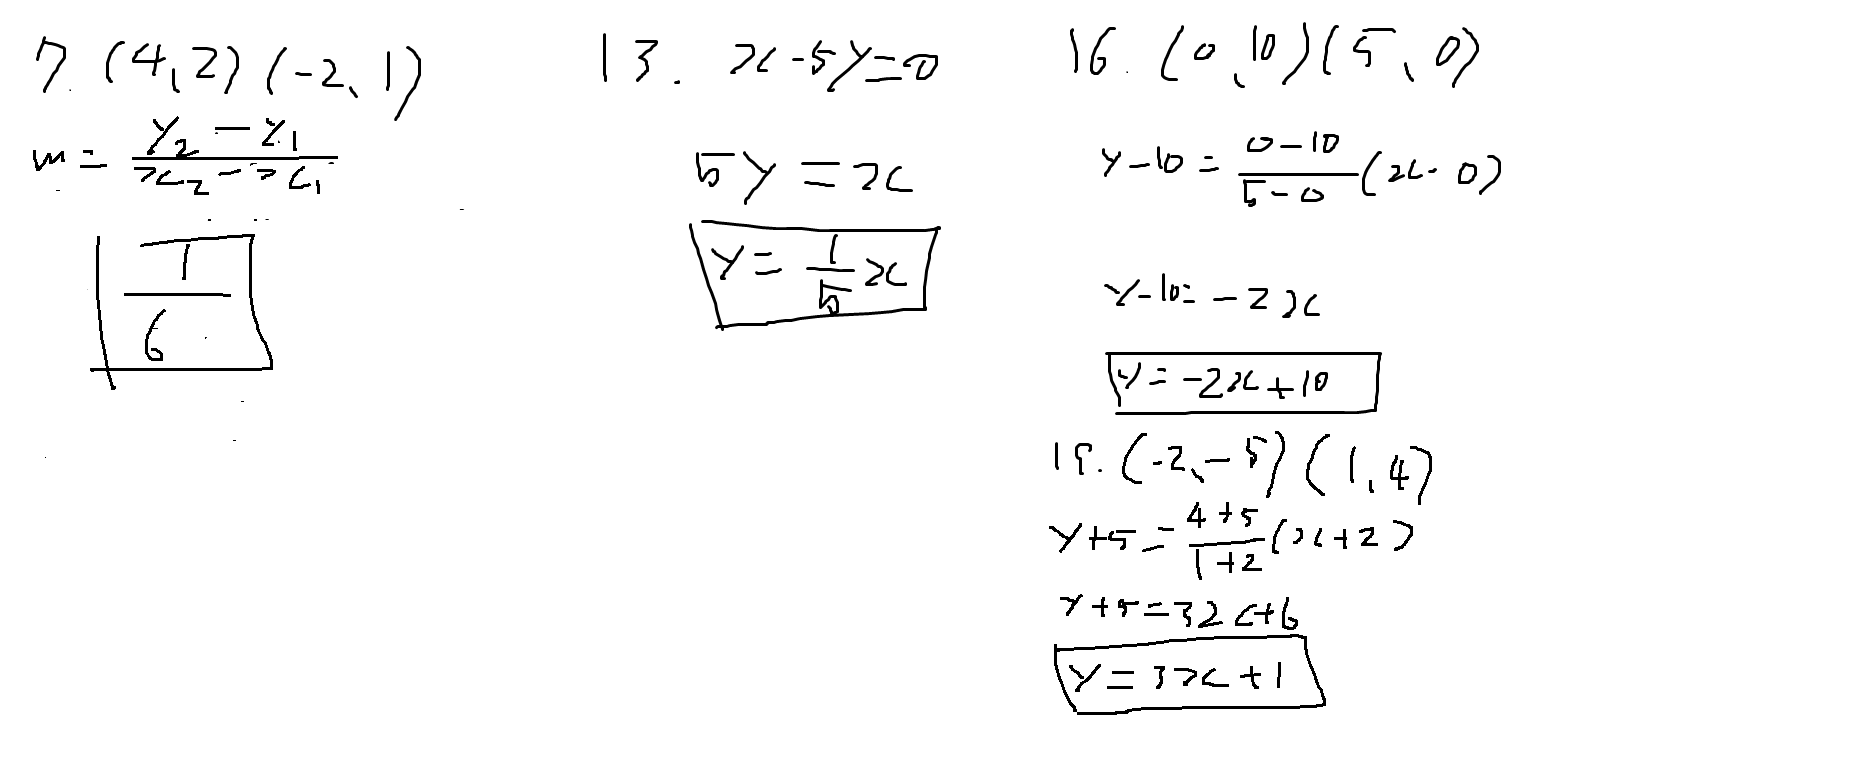 7. (4,2) (-2,1)
m = (y₂ - y₁)/(x₂ - x₁)
1/6
13. x - 5y = 0
5y = x
y = 1/5 x
16. (0,10) (5,0)
y - 10 = (0 - 10)/(5 - 0) (x - 0)
y - 10 = -2x
y = -2x + 10
(-2, -5) (1, 4)
y + 5 = (4 + 5)/(1 + 2) (x + 2)
y + 5 = 3x + 6
y = 3x + 1